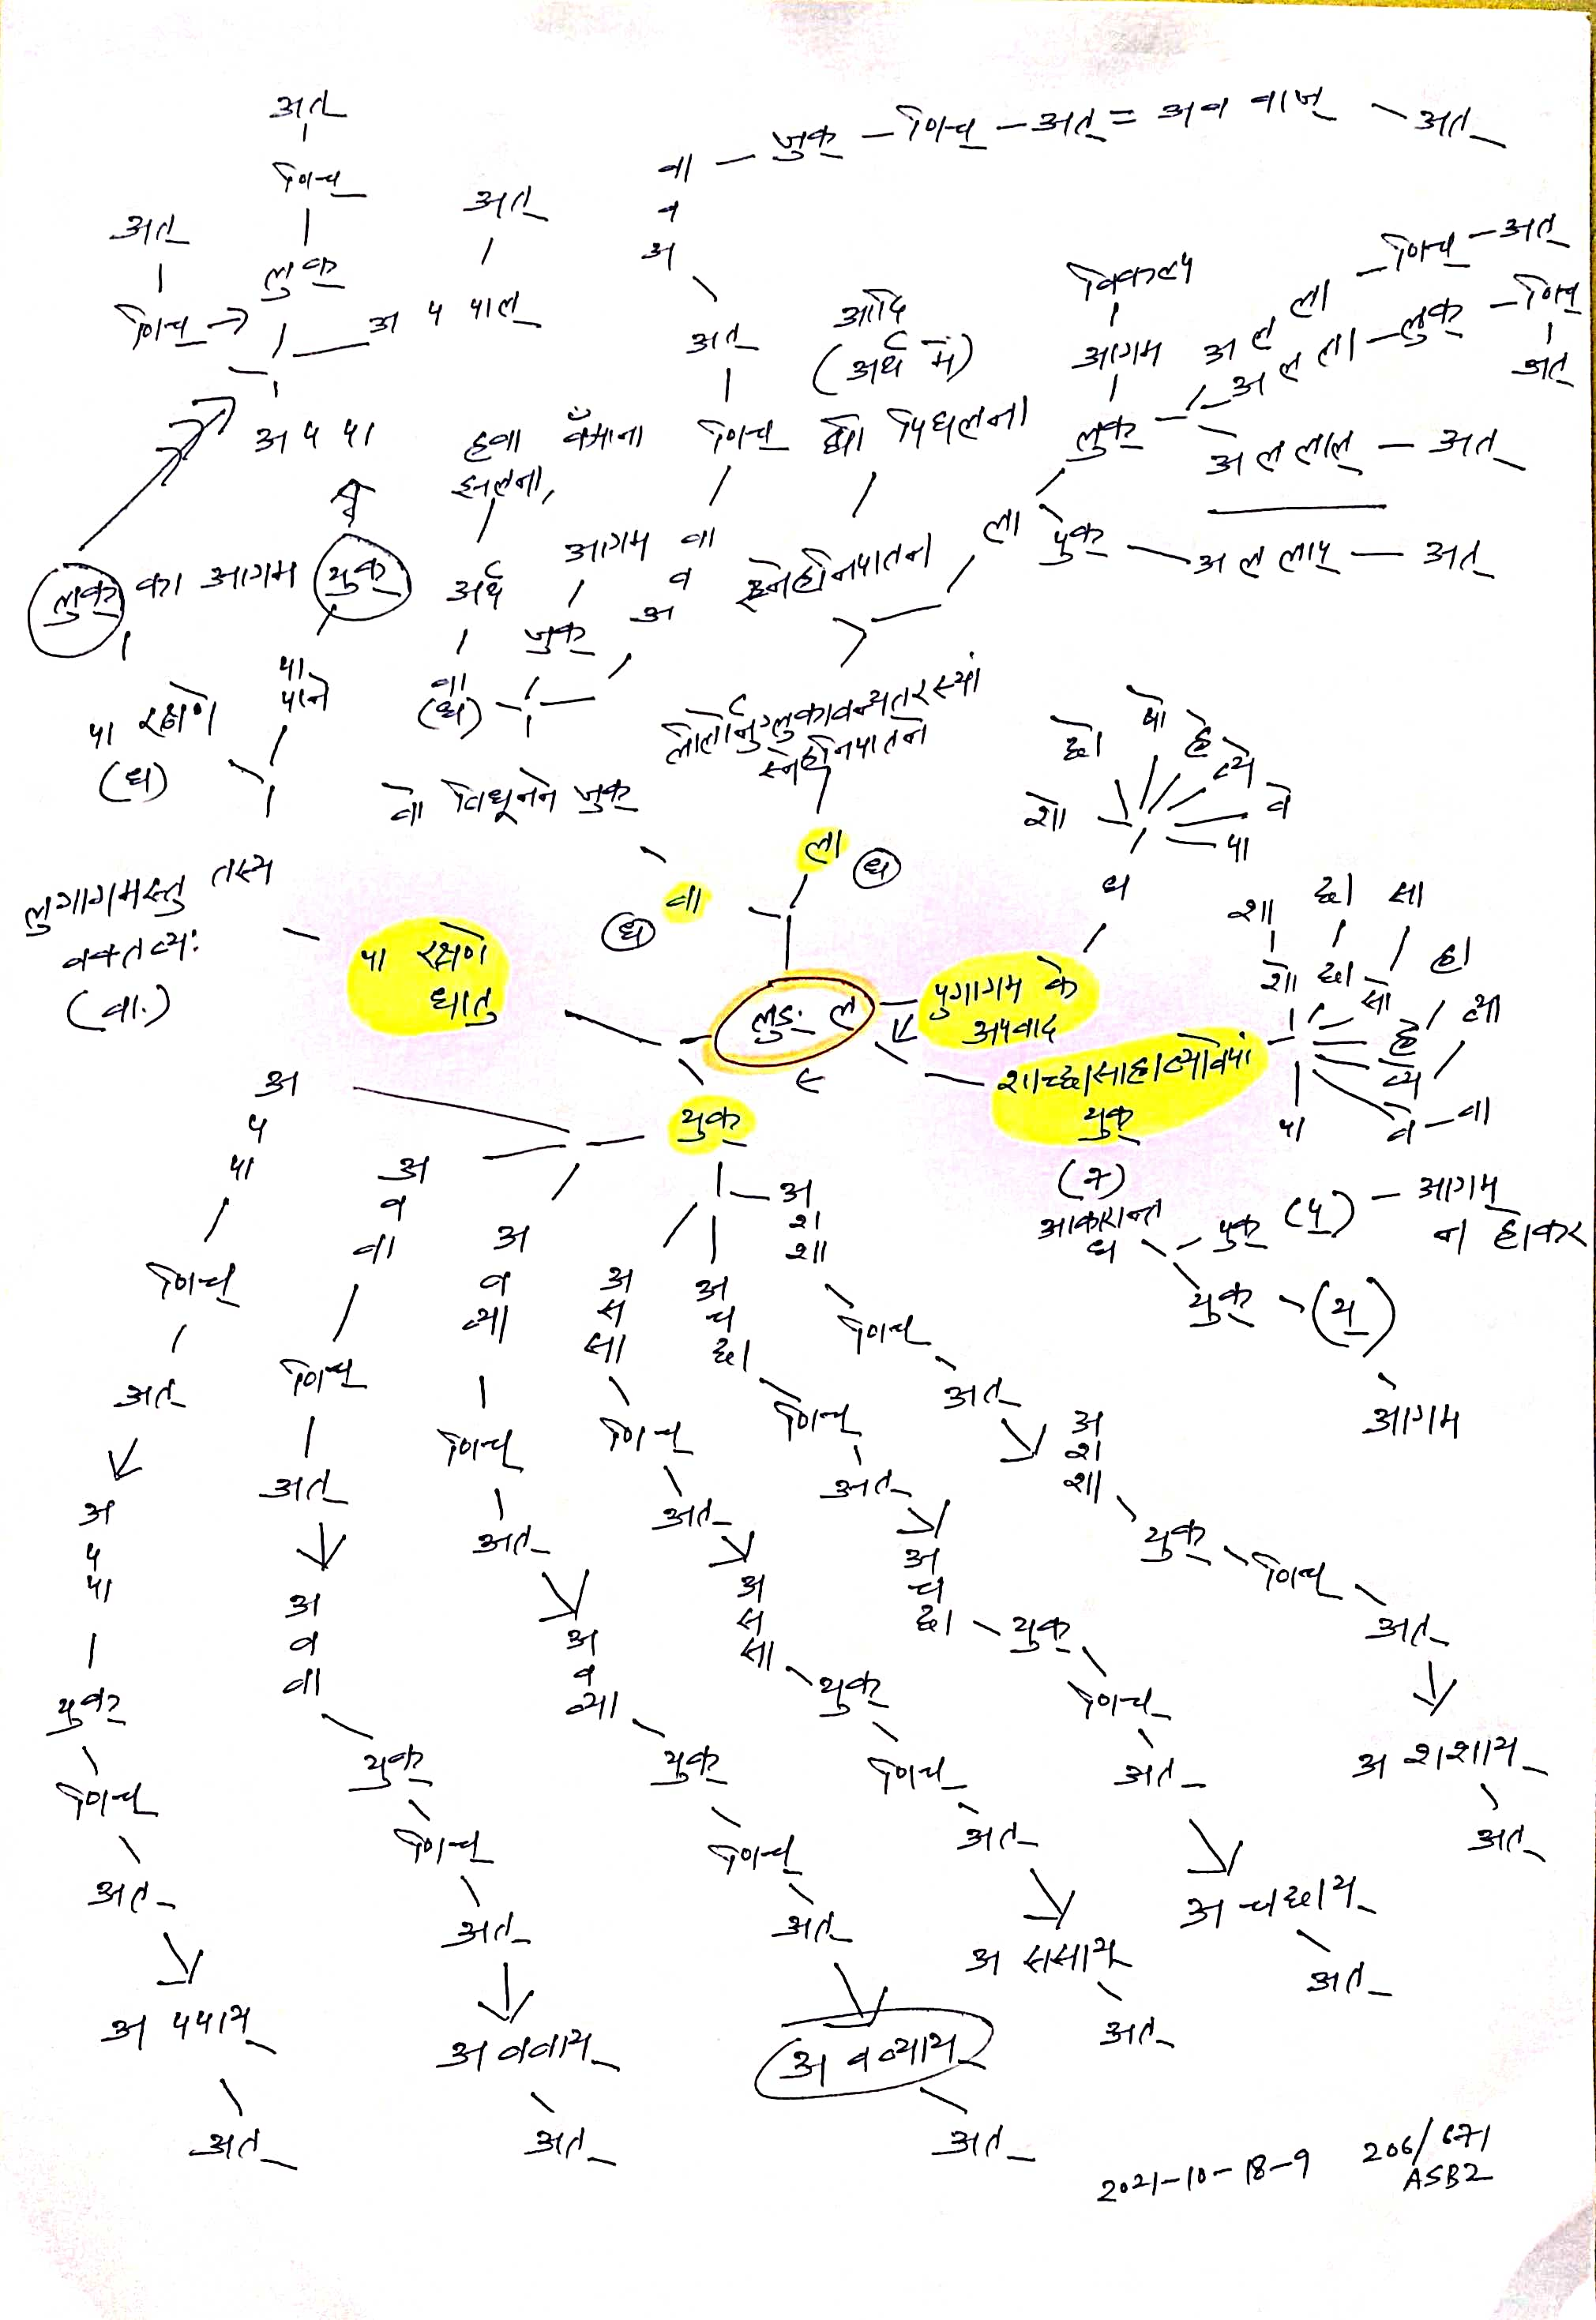 अत्
णिच्
लुक्
अत्
णिच् →
अ प पाल्
अत्
अ प पा
लुक् का आगम युक्
पा रक्षणे
(धा)
पा
पाने
लुगागमस्तु तस्य
वक्तव्यः
(वा.)
पा रक्षणे
धातु
वा – जुक् – णिच् – अत् = अव वाज् – अत्
व
अ
अत्
णिच्
आगम
जुक्
वा
व
अ
हवा
झलना,
अर्थ
वा
(धा)
वो विधूनने जुक्
वा
(धा)
आदि
(अर्थ में)
घी पिघलना
स्नेहनिपातन
लीलोर्नुग्लुकावन्यतरस्यां
स्नेहनिपातने
ला
(धा)
ला
विकल्प
आगम
लुक्
अ ल ला – णिच् – अत्
अ ल ला – लुक् – णिच्
अत्
अ ल लाल् – अत्
पुक् – अ ल लाप् – अत्
लुङ् ल
पुगागम के
अपवाद
धा
शो
छो
षो
ह्वे
व्ये
वे
पा
शाच्छासाह्वाव्यावेपां
युक्
शा
छा
सा
ह्वा
व्या
वा
शो
छो
सो
ह्वे
व्ये
वे
पा
(७)
आकारान्त
धा – पुक् (प्) – आगम
न होकर
युक् – (य्)
आगम
युक्
अ
प
पा
णिच्
अत्
अ
प
पा
युक्
णिच्
अत्
अ पपाय्
अत्
अ
व
वा
णिच्
अत्
अ
व
वा
युक्
णिच्
अत्
अ ववाय्
अत्
अ
व
व्या
णिच्
अत्
अ
व
व्या
युक्
णिच्
अत्
अ वव्याय्
अत्
अ
स
सा
णिच्
अत्
अ
स
सा
युक्
णिच्
अत्
अ ससाय्
अत्
अ
च
छा
णिच्
अत्
अ
च
छा
युक्
णिच्
अत्
अ चछाय्
अत्
अ
श
शा
णिच्
अत्
अ
श
शा
युक्
णिच्
अत्
अ शशाय्
अत्
2021-10-18-9
206/671
ASB2